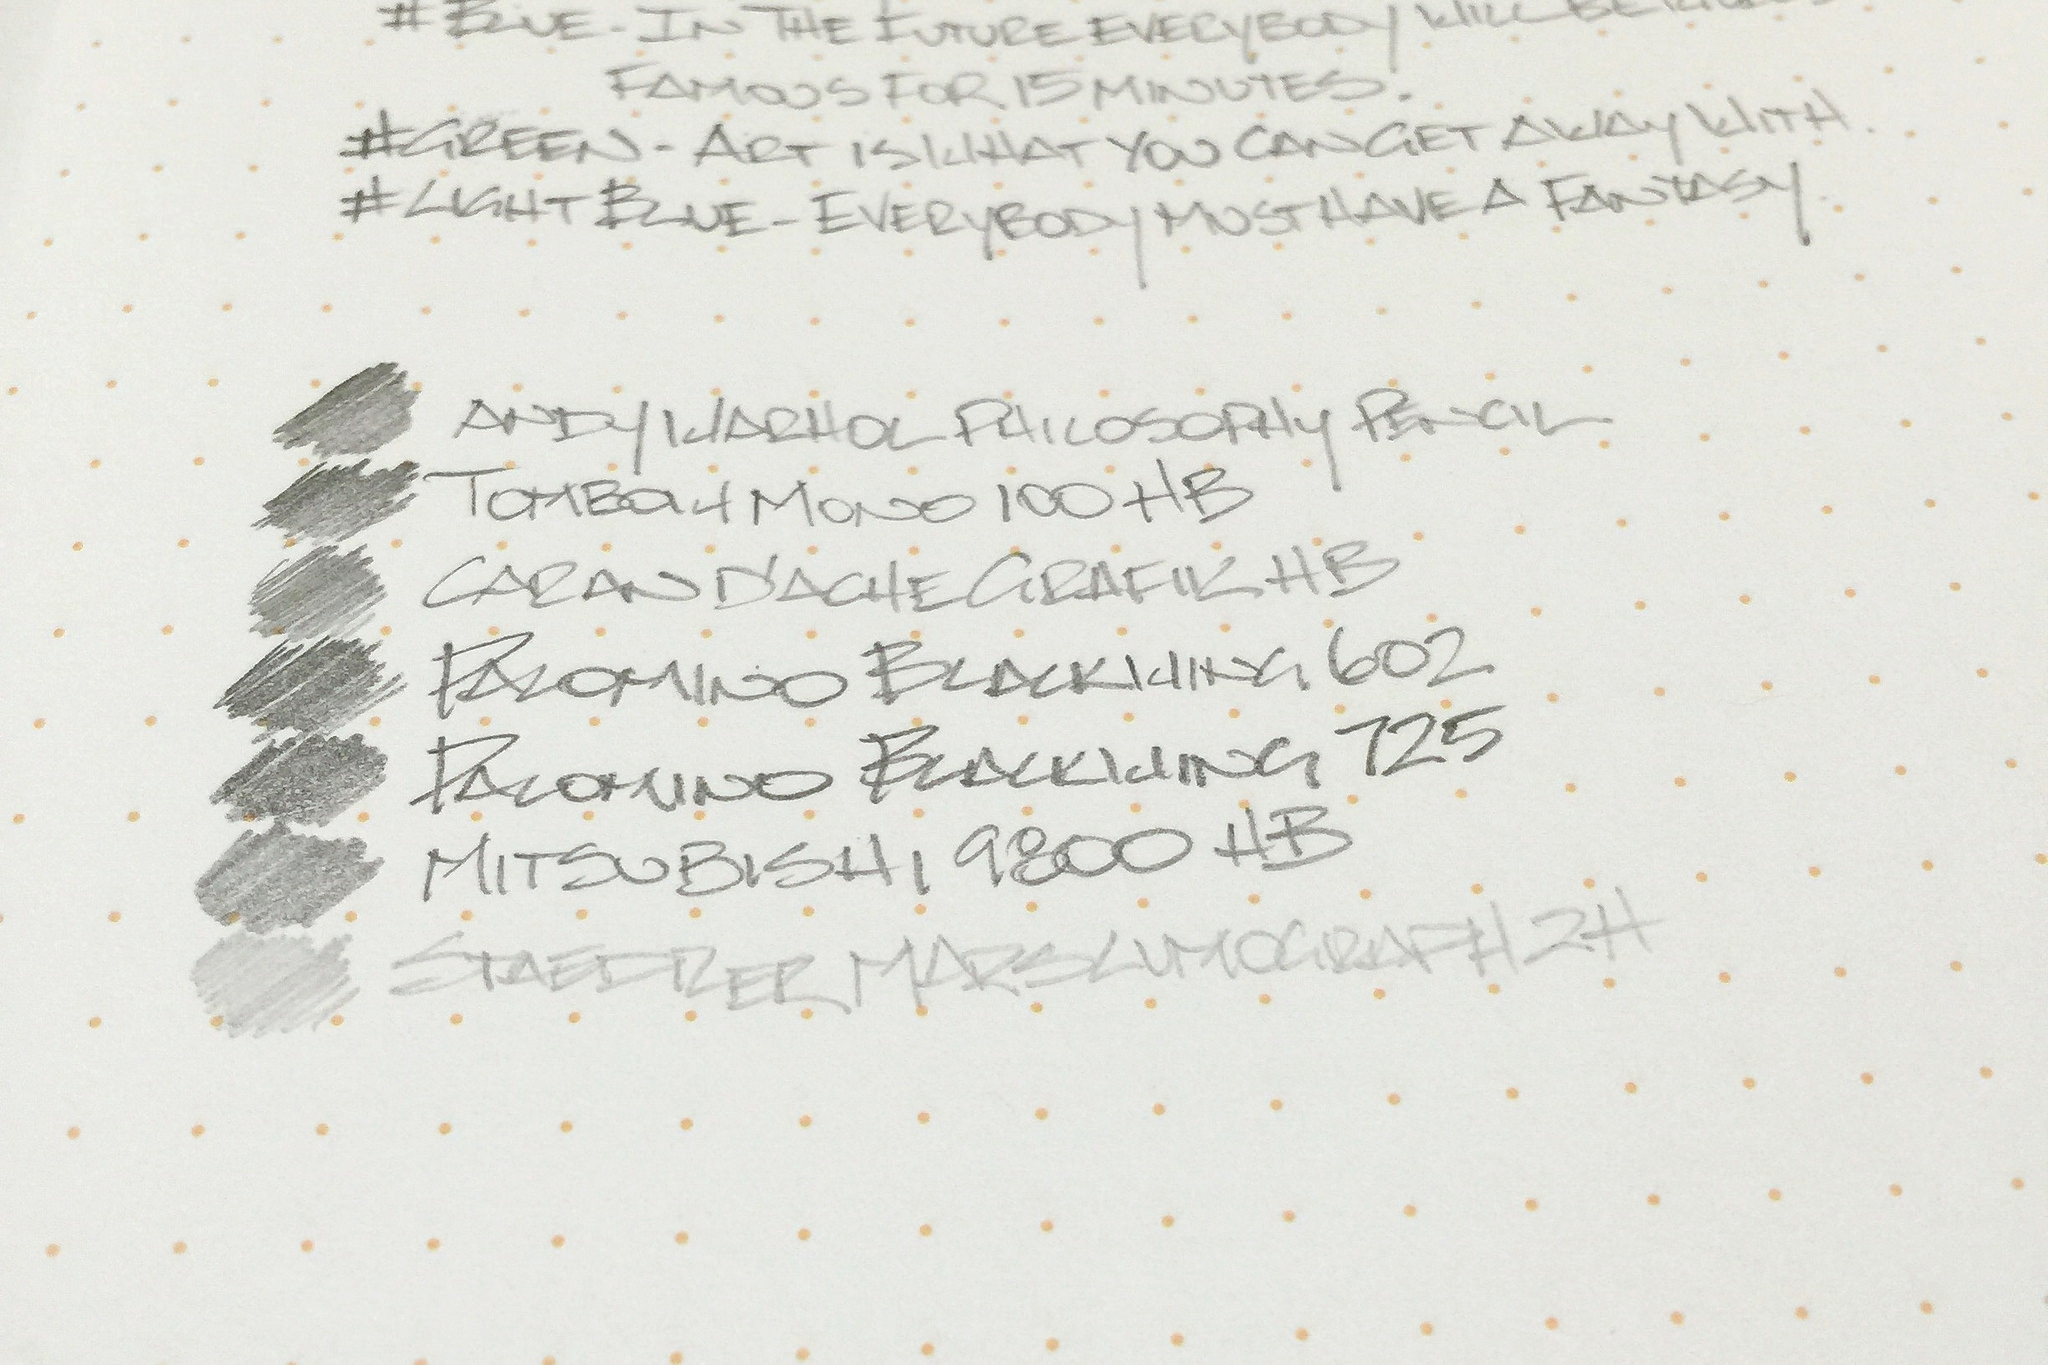 #BLUE - IN THE FUTURE EVERYBODY WILL BE
FAMOUS FOR 15 MINUTES.
#GREEN - ART IS WHAT YOU CAN GET AWAY WITH.
#LIGHT BLUE - EVERYBODY MUST HAVE A FANTASY.
ANDY WARHOL PHILOSOPHY PENCIL
TOMBOW MONO 100 HB
CARAN D'ACHE GRAFIK HB
PALOMINO BLACKWING 602
PALOMINO BLACKWING 725
MITSUBISHI 9800 HB
STAEDTLER MARS LUMOGRAPH 2H